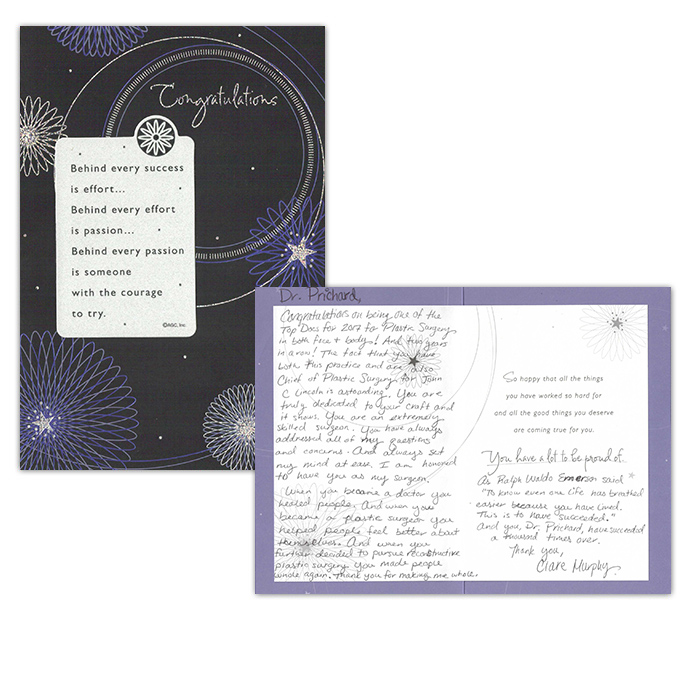 Congratulations
Behind every success
is effort...
Behind every effort
is passion...
Behind every passion
is someone
with the courage
to try.
©AGC, Inc
Dr. Prichard,
Congratulations on being one of the
Top Docs for 2017 for Plastic Surgery
in both face + body! And two years
in a row! The fact that you have
both this practice and are also
Chief of Plastic Surgery for John
C Lincoln is astounding. You are
truly dedicated to your craft and
it shows. You are an extremely
skilled surgeon. You have always
addressed all of my questions
and concerns. And always set
my mind at ease. I am honored
to have you as my surgeon.
When you became a doctor you
healed people. And when you
became a plastic surgeon you
helped people feel better about
themselves. And when you
further decided to pursue reconstructive
plastic surgery you made people
whole again. Thank you for making me whole.
So happy that all the things
you have worked so hard for
and all the good things you deserve
are coming true for you.
You have a lot to be proud of.
As Ralph Waldo Emerson said
"To know even one life has breathed
easier because you have lived.
This is to have succeeded."
and you, Dr. Prichard, have succeeded
a thousand times over.
Thank you,
Clare Murphy